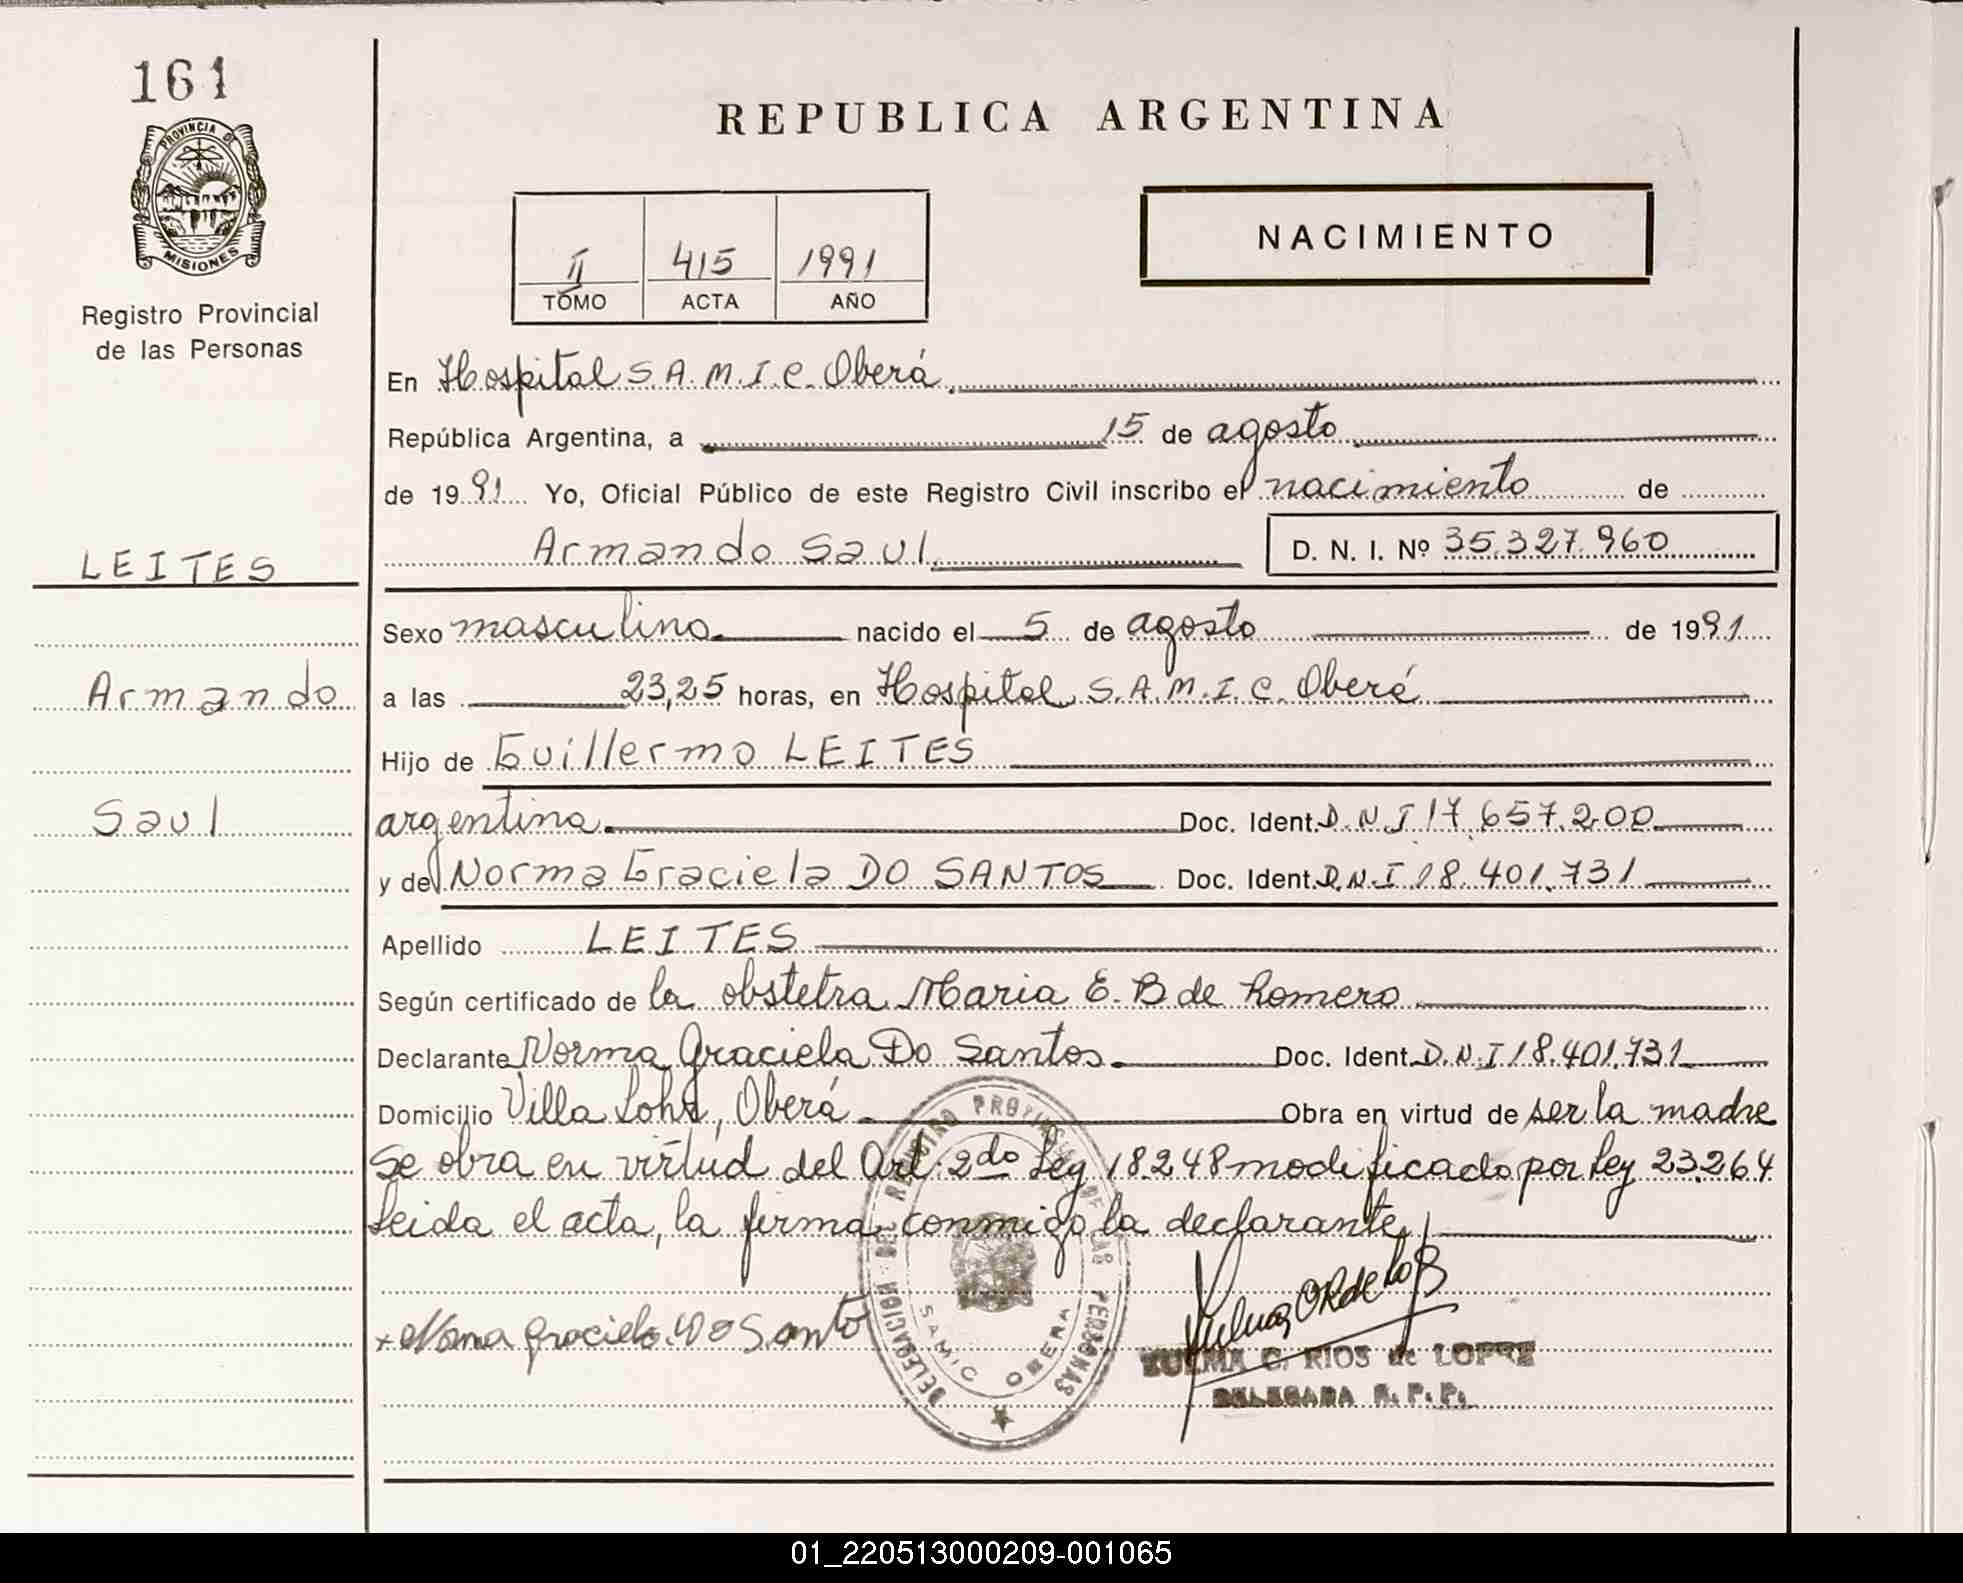 161
PROVINCIA DE
MISIONES
Registro Provincial
de las Personas
LEITES
Armando
Saul
REPUBLICA ARGENTINA
II 415 1991
TOMO ACTA AÑO
NACIMIENTO
En Hospital S.A.M.I.C. Oberá
República Argentina, a 15 de agosto
de 1991 Yo, Oficial Público de este Registro Civil inscribo el nacimiento de
Armando Saul D. N. I. Nº 35.327.960
Sexo masculino nacido el 5 de agosto de 1991
a las 23,25 horas, en Hospital S.A.M.I.C. Oberá
Hijo de Guillermo LEITES
argentina Doc. Ident. D.N.I 17.657.200
y de Norma Graciela DO SANTOS Doc. Ident. D.N.I 18.401.731
Apellido LEITES
Según certificado de la obstetra Maria E. B de Romero
Declarante Norma Graciela Do Santos Doc. Ident. D.N.I 18.401.731
Domicilio Villa, Oberá Obra en virtud de ser la madre
Se obra en virtud del Art. 2do Ley 18.248 modificado por Ley 23.264
Leida el acta, la firma conmigo la declarante
DELEGACION DEL REGISTRO PROVINCIAL DE LAS PERSONAS
SAMIC OBERA
Norma Graciela Do Santo
ZULMA C. RIOS de LOPEZ
DELEGADA R. P. P.
01_220513000209-001065